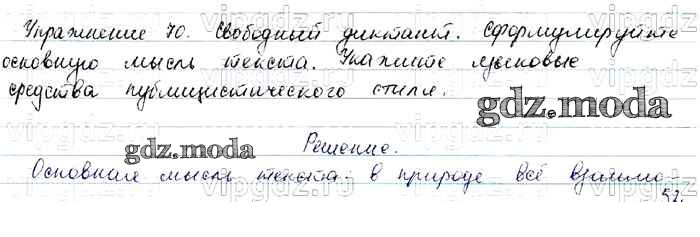 Упражнение 70. Свободный диктант. Сформулируйте
основную мысль текста. Укажите языковые
средства публицистического стиля.
gdz.moda
Решение.
gdz.moda
Основная мысль текста: в природе всё взаимо-
52.